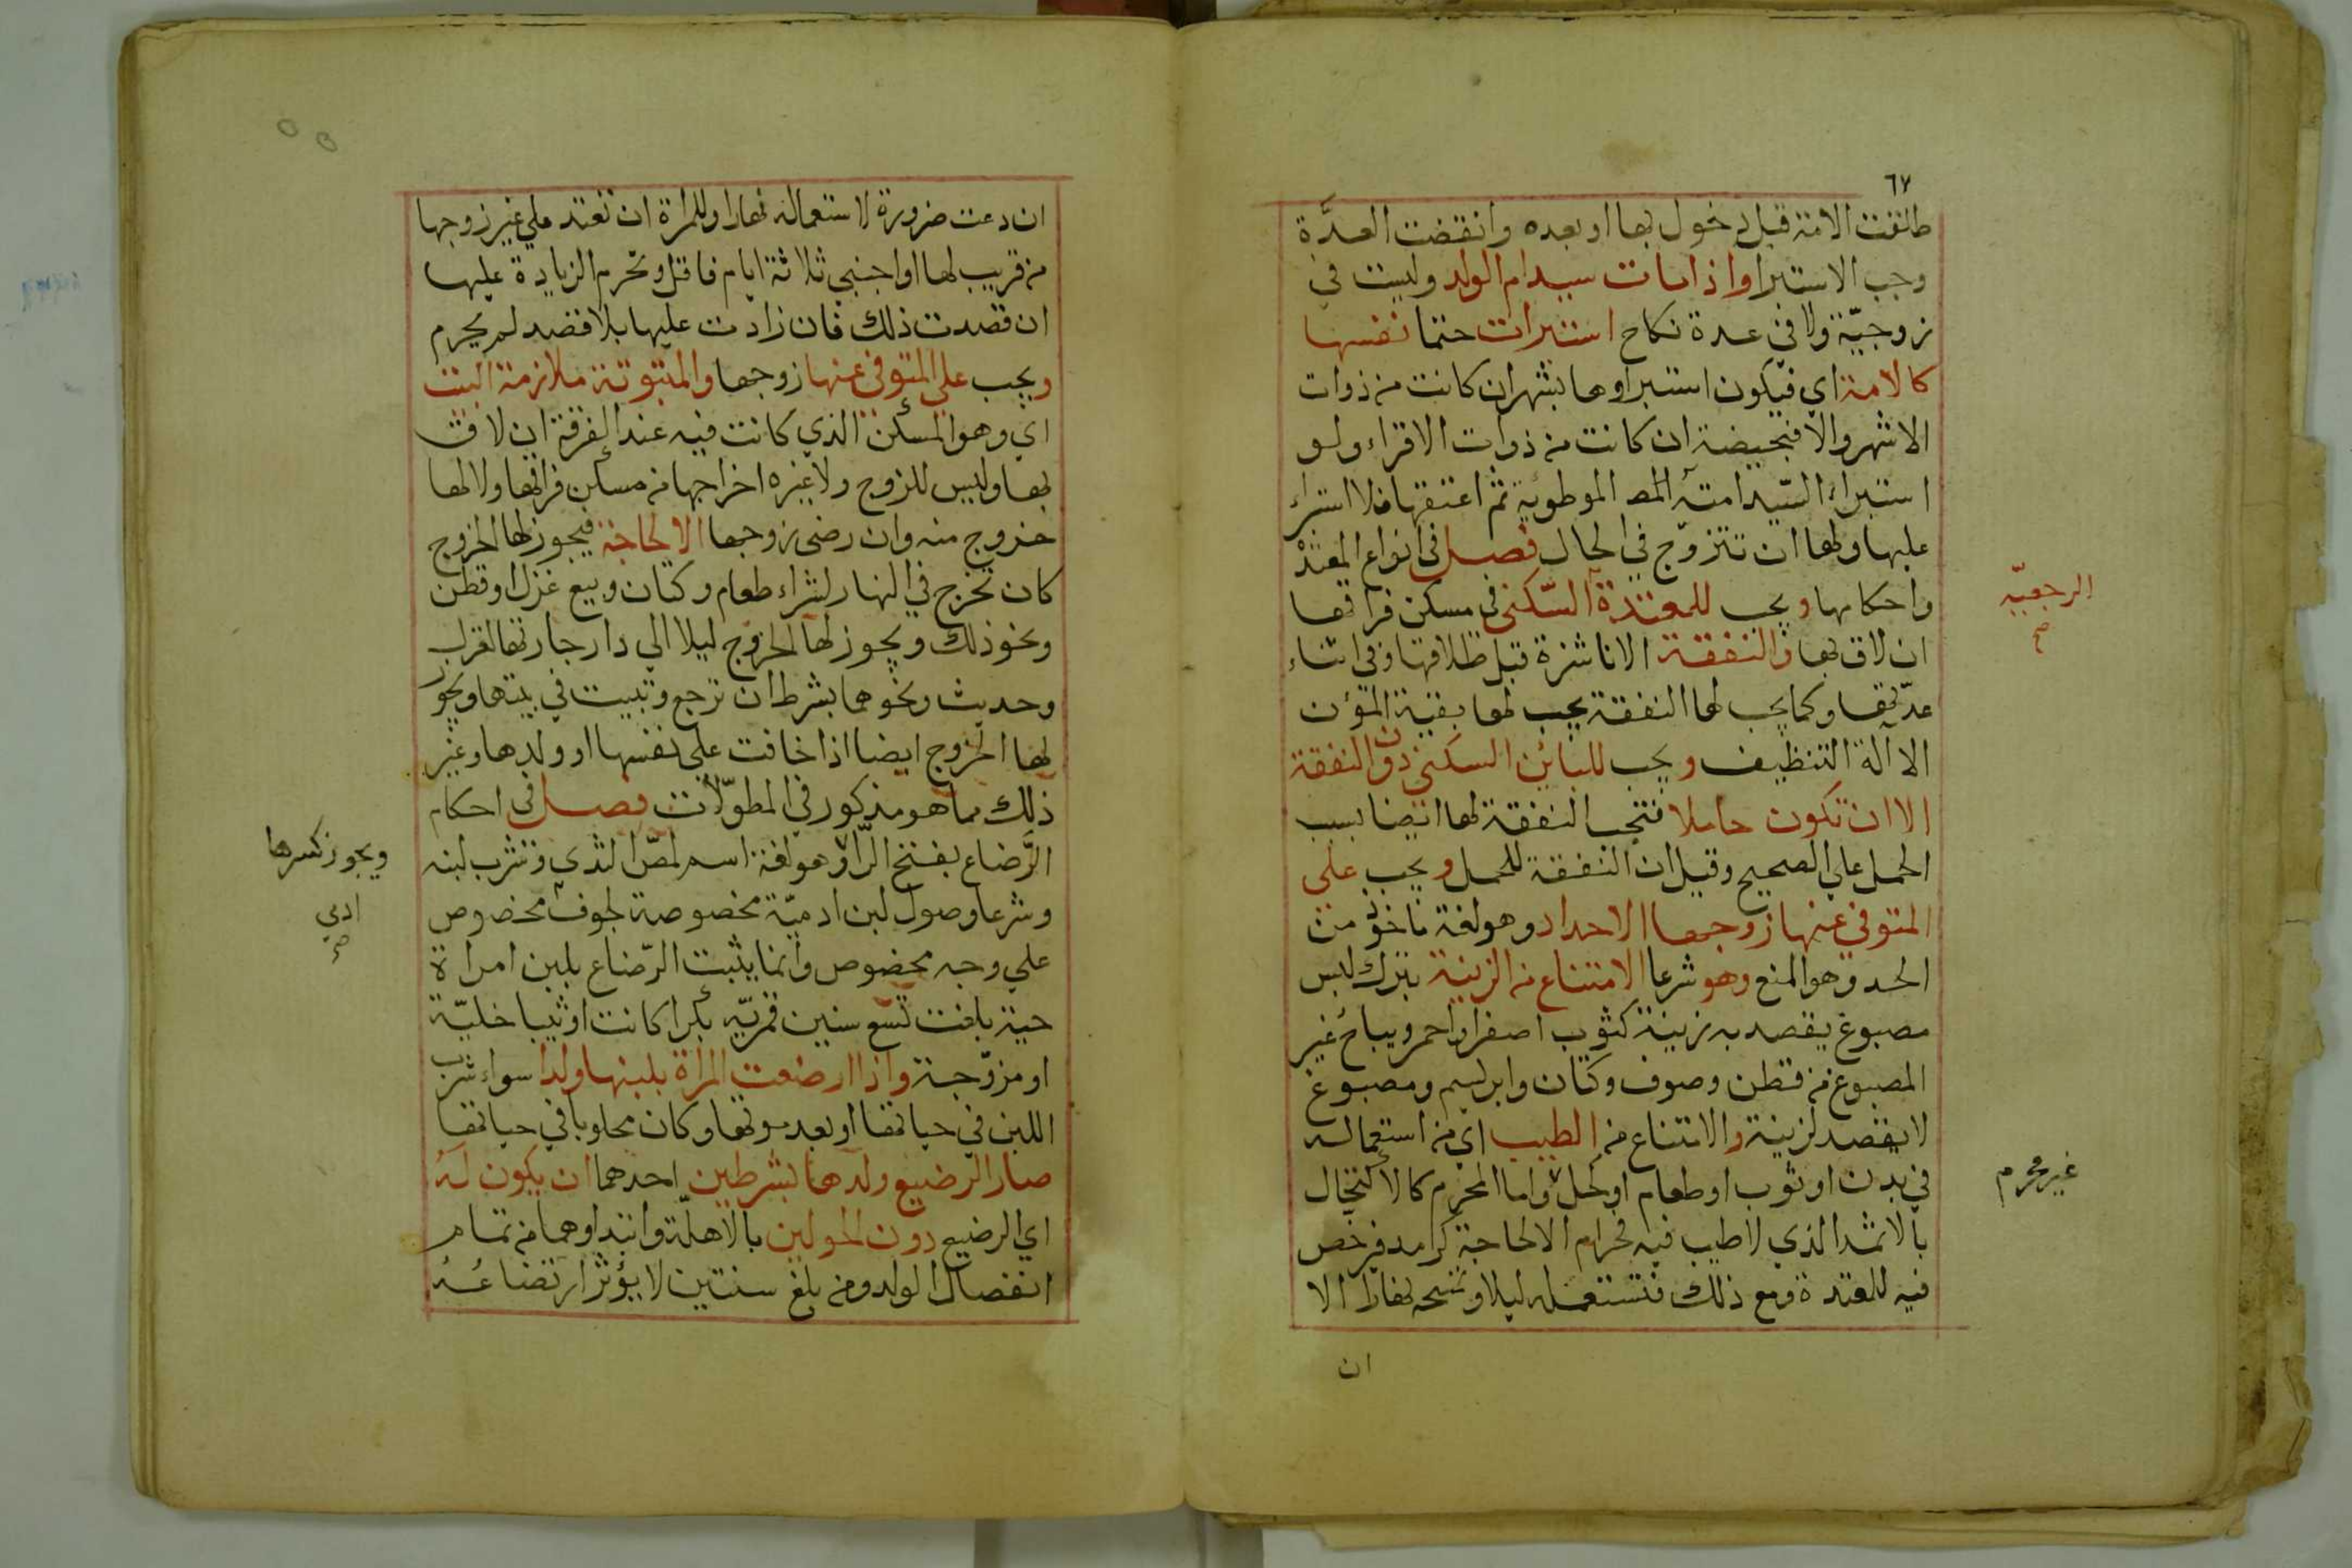 ٦٧
طلقت الامة قبل دخول بها او بعده وانقضت العدَّة
وجب الاستبرا واذا مات سيد ام الولد وليست في
زوجيّة ولا في عدة نكاح استبرات حتما نفسها
كالامة اي فيكون استبراوها بشهر ان كانت من ذوات
الاشهر والا فبحيضة ان كانت من ذوات الاقراء ولو
استبراء السّيد امته الموطوئة ثم اعتقها فلا استبراء
عليها ولها ان تتزوّج في الحال فصل في انواع المعتدة
واحكامها ويجب للمعتدة السّكنى في مسكن فراقها
الرجعيّه
صح
ان لاق بها والنفقة الا ناشزة قبل طلاقها وفي اثناء
عدّتها وكما يجب لها النفقة يجب لها بقية المؤن
الا آلة التنظيف ويجب للبائن السكنى دون النفقة
الا ان تكون حاملا فتجب النفقة لها ايضا بسبب
الحمل على الصحيح وقيل ان النفقة للحمل ويجب على
المتوفي عنها زوجها الاحداد وهو لغة ماخوذ من
الحد وهو المنع وهو شرعا الامتناع من الزينة بترك لبس
مصبوغ يقصد به زينة كثوب اصفر او احمر ويباح غير
المصبوغ من قطن وصوف وكتان وابريسم ومصبوغ
لا يقصد لزينة والامتناع من الطيب اي من استعماله
في بدن او ثوب او طعام او كحل واما المحرم كالاكتحال
غير محرم
بالاثمد الذي لا طيب فيه فحرام الا لحاجة كرمد فيرخص
فيه للمعتدة ومع ذلك فتستعمله ليلا وتمسحه نهارا الا
ان
ان دعت ضرورة لاستعماله نهارا وللمراة ان تعتد على غير زوجها
من قريب لها او اجنبي ثلاثة ايام فاقل وتحرم الزيادة عليها
ان قصدت ذلك فان زادت عليها بلا قصد لم يحرم
ويجب على المتوفى عنها زوجها والمبتوتة ملازمة البيت
اي وهو المسكن الذي كانت فيه عند الفرقة ان لاق
بها وليس للزوج ولا غيره اخراجها من مسكن فراقها ولا لها
خروج منه وان رضى زوجها الا لحاجة فيجوز لها الخروج
كان تخرج في النهار لشراء طعام وكتان وبيع غزل او قطن
ونحو ذلك ويجوز لها الخروج ليلا الى دار جارتها لغزل
وحديث ونحوهما بشرط ان ترجع وتبيت في بيتها ويجوز
لها الخروج ايضا اذا خافت على نفسها او ولدها وغير
ذلك مما هو مذكور في المطوّلات فصل في احكام
الرَّضاع بفتح الرّا وهو لغة اسم لمصّ الثدي وشرب لبنه
ويجوز كسرها
وشرعا وصول لبن ادميّة مخصوصة لجوف مخصوص
ادمي
صح
على وجه مخصوص وانما يثبت الرّضاع بلبن امراة
حية بلغت تسع سنين قمريّه بكرا كانت او ثيبا خليّة
او مزوّجة واذا ارضعت المراة بلبنها ولدا سواء شرب
اللبن في حياتها او بعد موتها وكان محلوبا في حياتها
صار الرضيع ولدها بشرطين احدهما ان يكون لهُ
اي الرضيع دون الحولين بالاهلّة وابتداوهما من تمام
انفصال الولد ومن بلغ سنتين لا يؤثر ارتضاعُهُ